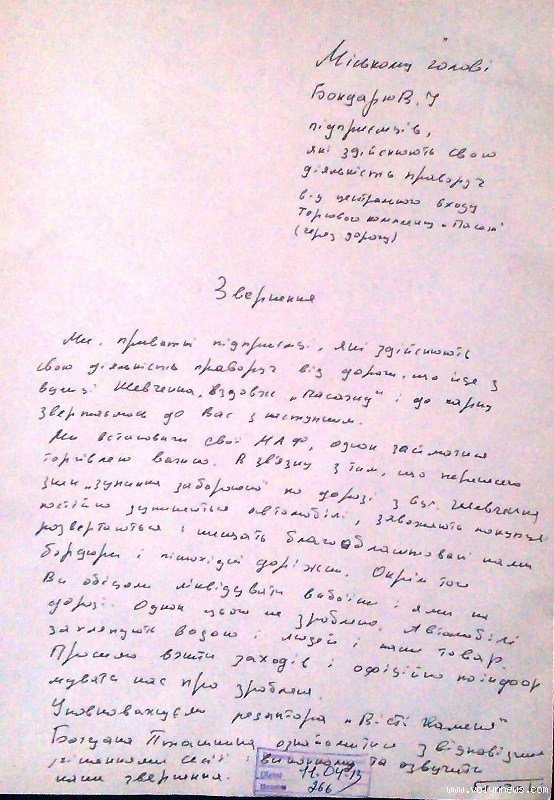 Міському голові
Бондарю В. І
підприємців,
які здійснюють свою
діяльність праворуч
від центрального входу
Торгового комплексу „Пасаж"
(через дорогу)
Звернення
Ми, приватні підприємці, які здійснюють
свою діяльність праворуч від дороги, що йде з
вулиці Шевченка, вздовж „Пасажу" і до парку
звертаємось до Вас з наступним.
Ми встановили свої МАФ, однак займатися
торгівлею важко. В зв'язку з тим, що
знак „зупинка заборонена" по дорозі з вул. Шевченка
постійно зупиняються автомобілі, заважають покупцям
розвертаються і нищать благоблаштовані нами
бордюри і пішохідні доріжки. Окрім того
Ви обіцяли ліквідувати вибоїни і ями на
дорозі. Однак цього не зроблено. Автомобілі
захляпують водою і людей і наш товар.
Просимо вжити заходів і офіційно поінфор
мувати нас про зроблене.
Уповноважуєм репортера „Вісті Каменя"
Богдана ознайомитись з відповідними
рішеннями сесії і виконкому та озвучити
наше звернення.
11.04.13
266
www.volynnews.com